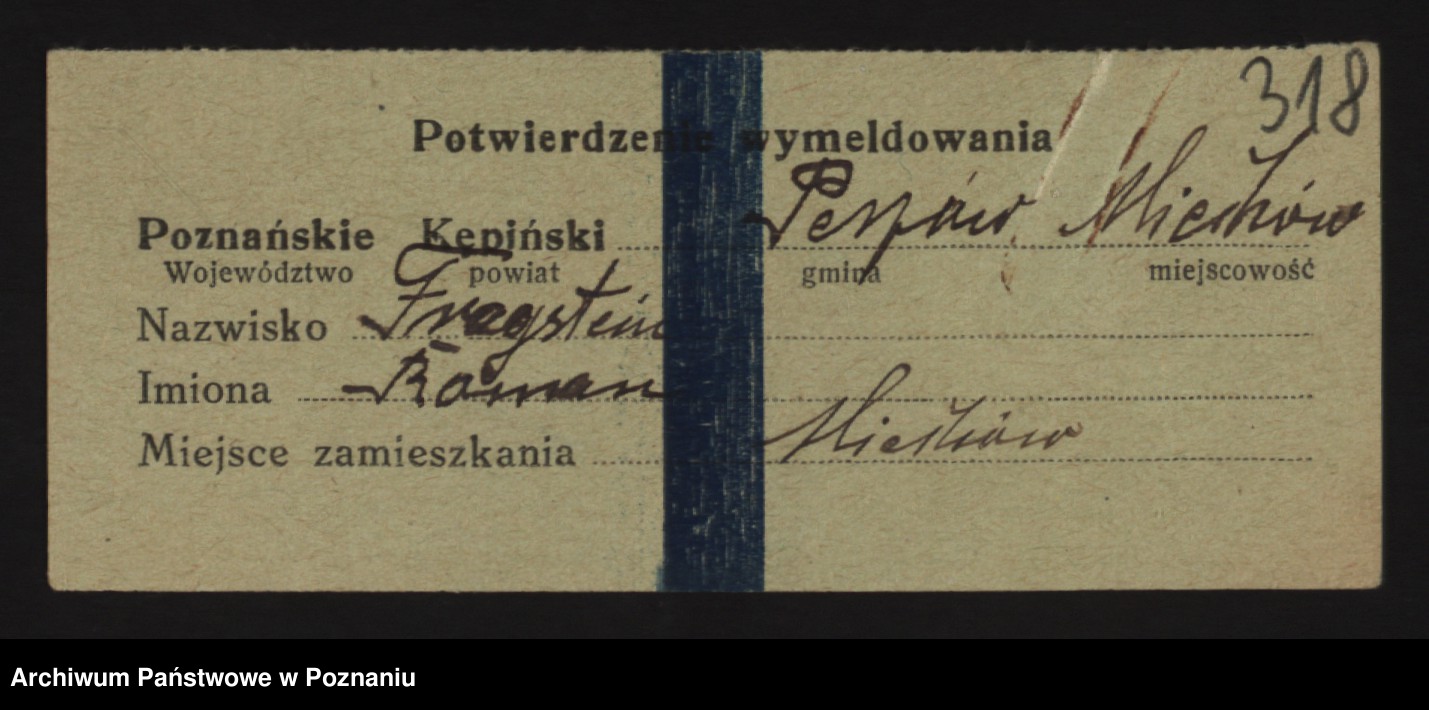 318
Potwierdzenie wymeldowania
Poznańskie Kępiński Perzów Miechów
Województwo powiat gmina miejscowość
Nazwisko Fragstein
Imiona Roman
Miejsce zamieszkania Miechów
Archiwum Państwowe w Poznaniu